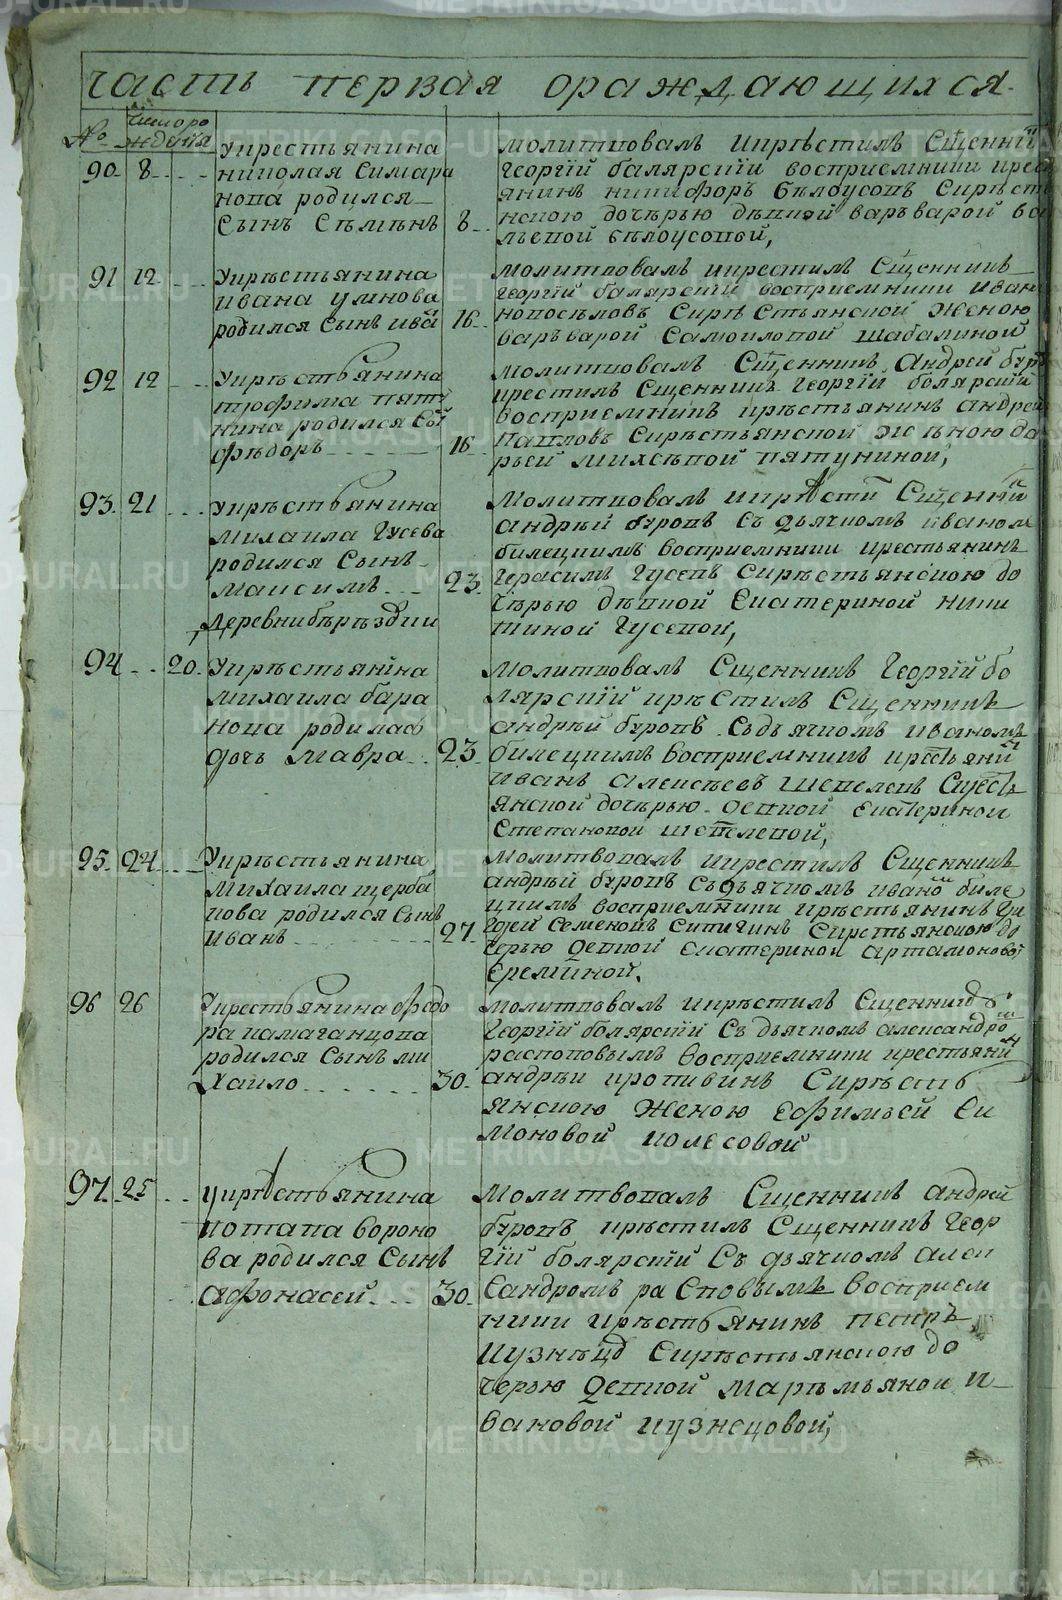 часть первая ораждающихся.
№ число рождения
90. 8. укрестьянина николая Симаро
нова родился
сынъ Съмѣнъ 8
молитвовалъ икрѣстилъ Сщенникъ
Георгїй балярскїи восприемники крест
янинъ никифоръ бѣлоусовъ Скрѣсть
нскою дочѣрью дѣвкой варъварой ва
льевой бѣлоусовой,
91 12 укрѣстьянина
ивана умнова
родился сынъ ива 16
молитвовалъ икрестилъ Сщенникъ
георгїй балярскїй восприемники иван
новосѣловъ Скрѣстьянской женою
варъварой Самоиловой шабалиной
92 12 укрѣстьянина
трофима пяту
нина родился Сы
фѣдоръ 16
молитвовалъ Сщенникъ Андрей буро
крестилъ Сщенникъ георгїй болярскїи
восприемникъ крѣстьянинъ андрей
павловъ Скрѣстьянской жѣною да
рьей михѣевой пятуниной,
93. 21 укрѣстьянина
михаила Гусева
родился Сынъ
Максимъ 23.
молитвовалъ икрѣсти Сщенни
андрѣй буровъ Съ дьячкомъ иваном
билецкимъ восприемники крестьянинъ
Герасимъ Гусевъ Скрѣстьянскою до
чѣрью дѣвкой Екатериной ники
тиной Гусевой,
деревни бѣрѣздки
94 20. укрѣстьянина
михаила бара
нова родилась
дочь мавра 23.
молитвовалъ Сщенникъ Георгїй бо
лярскїй крѣстилъ Сщенникъ
андрѣй буровъ Съдьячкомъ иваномъ
билецкимъ восприемникъ крестьяни
иванъ алексѣевъ шевелевъ Скресть
янской дочѣрью девкой екатериной
степановой шевелевой,
95. 24 укрѣстьянина
михаила щерба
кова родился сынъ
иванъ 27.
молитвовалъ икрестилъ Сщенникъ
андрѣй буровъ Съдьячкомъ ивано биле
цкимъ восприемники крѣстьянинъ
Семеновъ Скрстьянскою до
черью девкой екатериной артамоновой
Еремѣиной.
96 26 укрестьянина федо
ра камаганцова
родился Сынъ ми
хаило 30.
молитвовалъ икрѣстилъ Сщенникъ
Георгїй болярскїй Съ дьячкомъ александро
распоповымъ восприемники крестьяни
андрѣи кропивинъ Скрѣсть
янскою женою ефимьей Си
моновой колесовой
97. 25 укрѣстьянина
потапа вороно
ва родился Сынъ
афонасей 30.
молитвовалъ Сщенникъ андрей
буровъ крѣстилъ Сщенникъ геор
гїй болярскїй Съ дьячкомъ алек
Сандромъ ра споповымъ восприем
ники крѣстьянинъ петръ
кузнѣцо Скрѣстьянскою до
черью девкой марѣмьяной и
вановой кузнецовой,